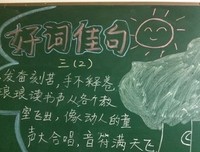 好词佳句
三(2)
发奋刻苦，手不释卷
琅琅读书声从各个教
室飞出，像动人的童
声大合唱，音符满天飞